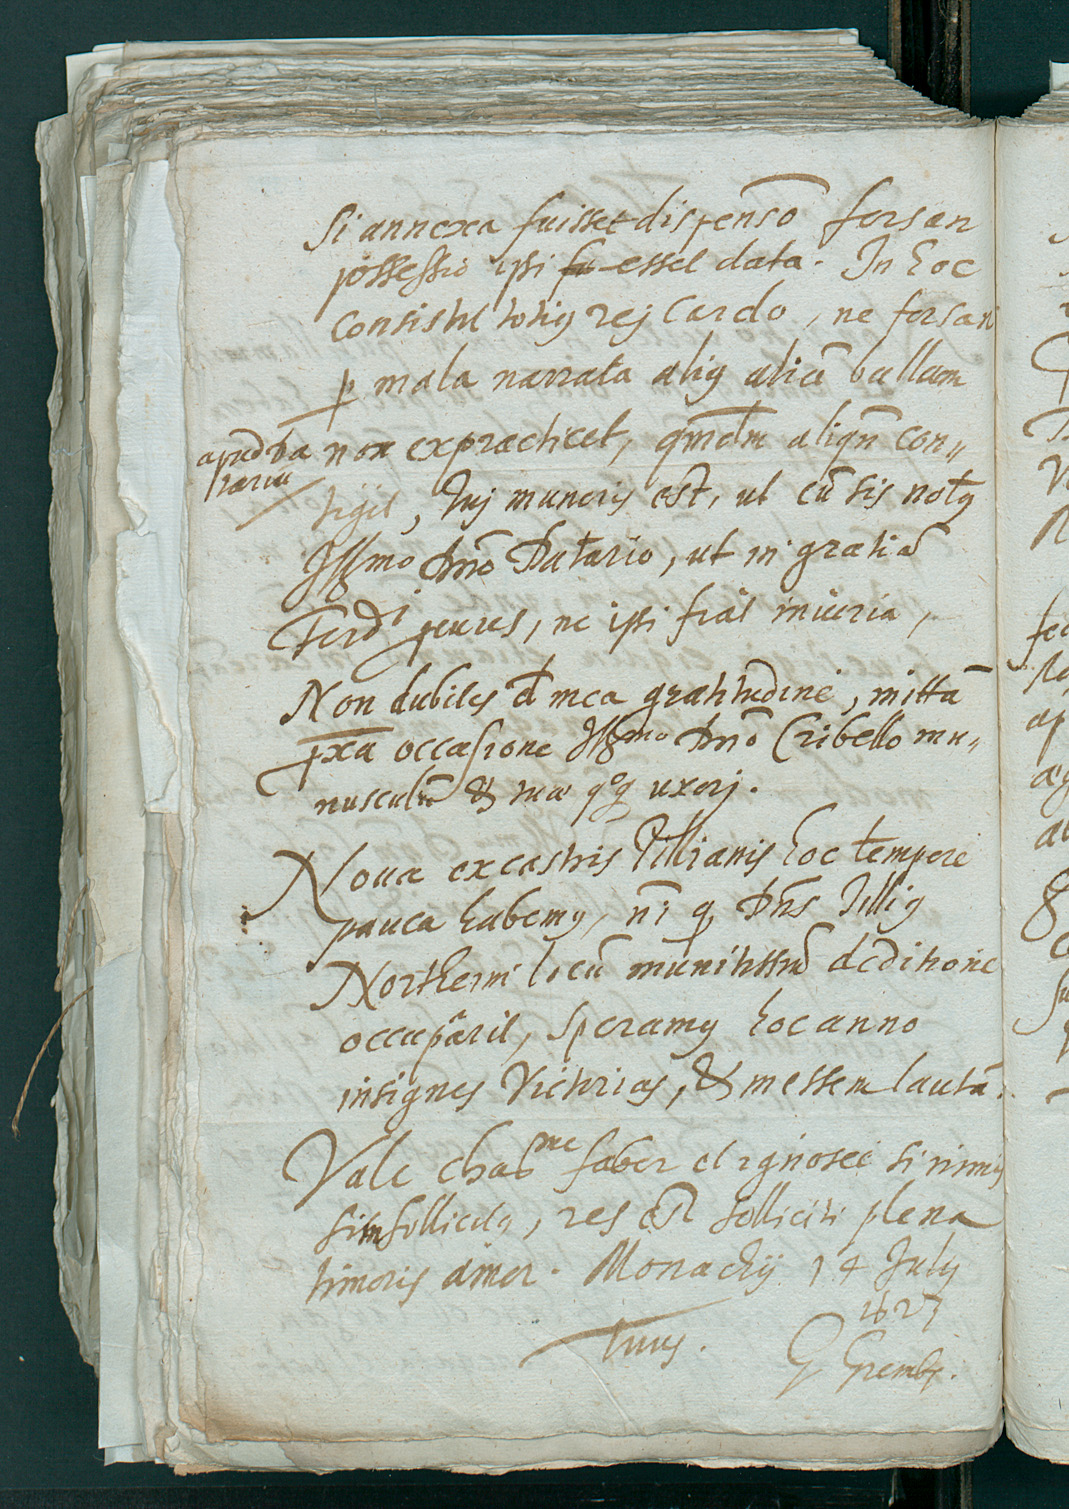 Si annexa fuisset dispenso forsan
possessio ipsi fu esset data. In hoc
consistit totius rej Cardo, ne forsan
p mala narrata alius aliā bullam
non expracticet, qmdm aliqn con„
apud
tigit, tuj muneris est, ut cū sis notus
Illmo Dno Datario, ut in gratiā
Ferdi cures, ne ipsi fiat iniuria,
Non dubites de mea gratitudine, mittā
pxa occasione Illmo Dno Cribello mu„
nusculū & tuæ qoq uxorj.
Noua ex castris Tillianis hoc tempore
pauca habemus, ni q Dns Tillius
Northemi locū munitissimū deditione
occuparit, speramus hoc anno
insignes Victorias, & messem lautā.
Vale charme faber et ignosce si nimis
sim sollicitus, res est solliciti plena
timoris amor. Monachij 14 July
1627
tuus.